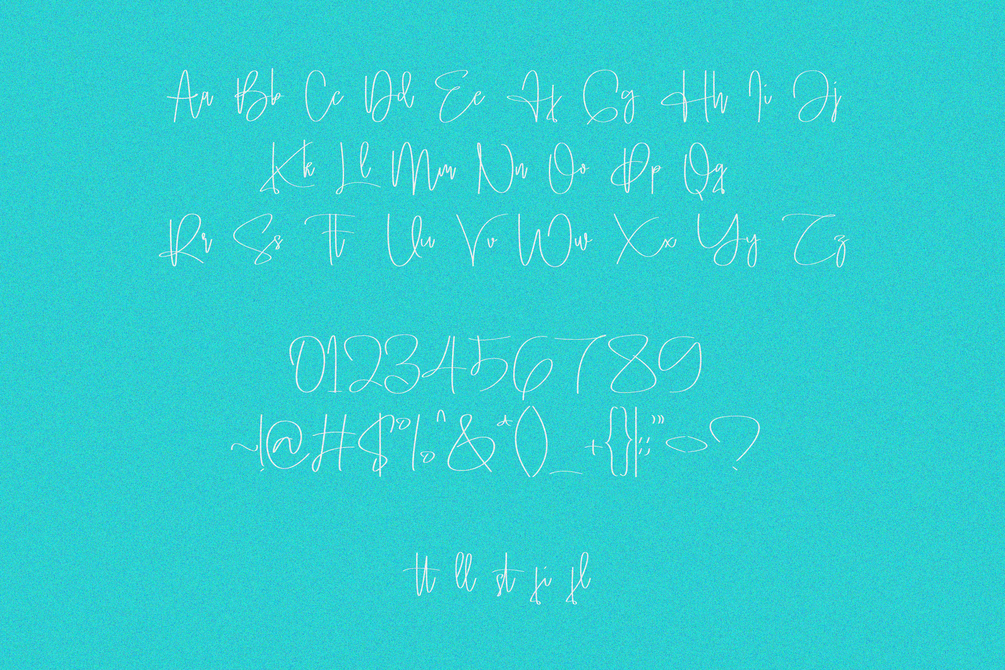 Aa Bb Cc Dd Ee Ff Gg Hh Ii Jj
Kk Ll Mm Nn Oo Pp Qq
Rr Ss Tt Uu Vv Ww Xx Yy Zz
0123456789
~!@#$%^&*()_+{}|:;"<>?
tt ll st fi fl